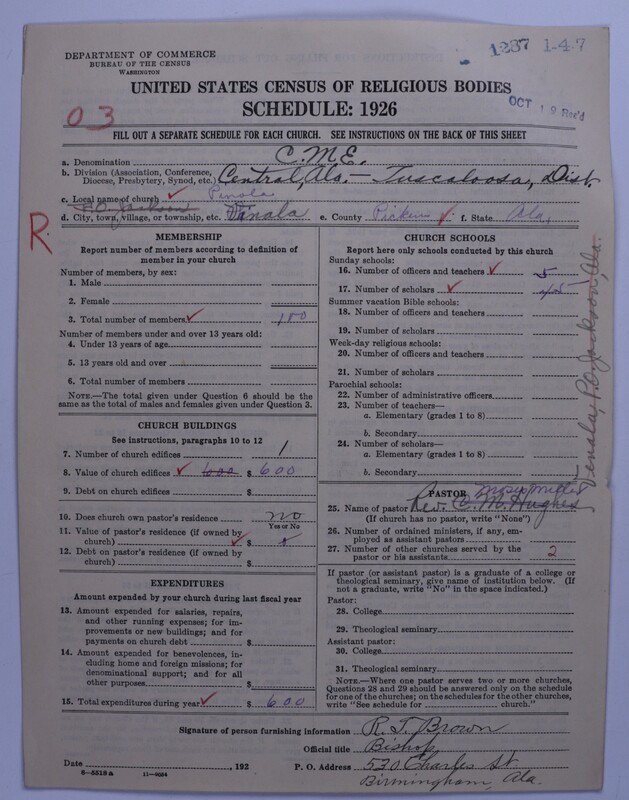 1237 1-4-7
DEPARTMENT OF COMMERCE
BUREAU OF THE CENSUS
WASHINGTON
UNITED STATES CENSUS OF RELIGIOUS BODIES
SCHEDULE: 1926
OCT 19 Rec'd
03
FILL OUT A SEPARATE SCHEDULE FOR EACH CHURCH. SEE INSTRUCTIONS ON THE BACK OF THIS SHEET
a. Denomination C.M.E.
b. Division (Association, Conference, Diocese, Presbytery, Synod, etc.) Central, Ala. — Tuscaloosa, Dist.
c. Local name of church Pinola
P.O. Jackson
d. City, town, village, or township, etc. e. County Pickens f. State Ala.
R.
MEMBERSHIP
Report number of members according to definition of member in your church
Number of members, by sex:
1. Male
2. Female
3. Total number of members 180
Number of members under and over 13 years old:
4. Under 13 years of age
5. 13 years old and over
6. Total number of members
NOTE.—The total given under Question 6 should be the same as the total of males and females given under Question 3.
CHURCH BUILDINGS
See instructions, paragraphs 10 to 12
7. Number of church edifices 1
8. Value of church edifices 600 $ 600
9. Debt on church edifices $
10. Does church own pastor's residence no
Yes or No
11. Value of pastor's residence (if owned by church) $
12. Debt on pastor's residence (if owned by church) $
EXPENDITURES
Amount expended by your church during last fiscal year
13. Amount expended for salaries, repairs, and other running expenses; for improvements or new buildings; and for payments on church debt $
14. Amount expended for benevolences, including home and foreign missions; for denominational support; and for all other purposes $
15. Total expenditures during year $ 600
CHURCH SCHOOLS
Report here only schools conducted by this church
Sunday schools:
16. Number of officers and teachers 5
17. Number of scholars
Summer vacation Bible schools:
18. Number of officers and teachers
19. Number of scholars
Week-day religious schools:
20. Number of officers and teachers
21. Number of scholars
Parochial schools:
22. Number of administrative officers
23. Number of teachers—
a. Elementary (grades 1 to 8)
b. Secondary
24. Number of scholars—
a. Elementary (grades 1 to 8)
b. Secondary
P.O. Jackson, Ala.
PASTOR
25. Name of pastor Rev. C. M. Hughes
(If church has no pastor, write "None")
26. Number of ordained ministers, if any, employed as assistant pastors
27. Number of other churches served by the pastor or his assistants 2
If pastor (or assistant pastor) is a graduate of a college or theological seminary, give name of institution below. (If not a graduate, write "No" in the space indicated.)
Pastor:
28. College
29. Theological seminary
Assistant pastor:
30. College
31. Theological seminary
NOTE.—Where one pastor serves two or more churches, Questions 28 and 29 should be answered only on the schedule for one of the churches; on the schedules for the other churches, write "See schedule for ______ church."
Signature of person furnishing information R. T. Brown
Official title Bishop
Date ______, 192 P. O. Address 530 Charles St
Birmingham, Ala.
8-5218a 11-9084